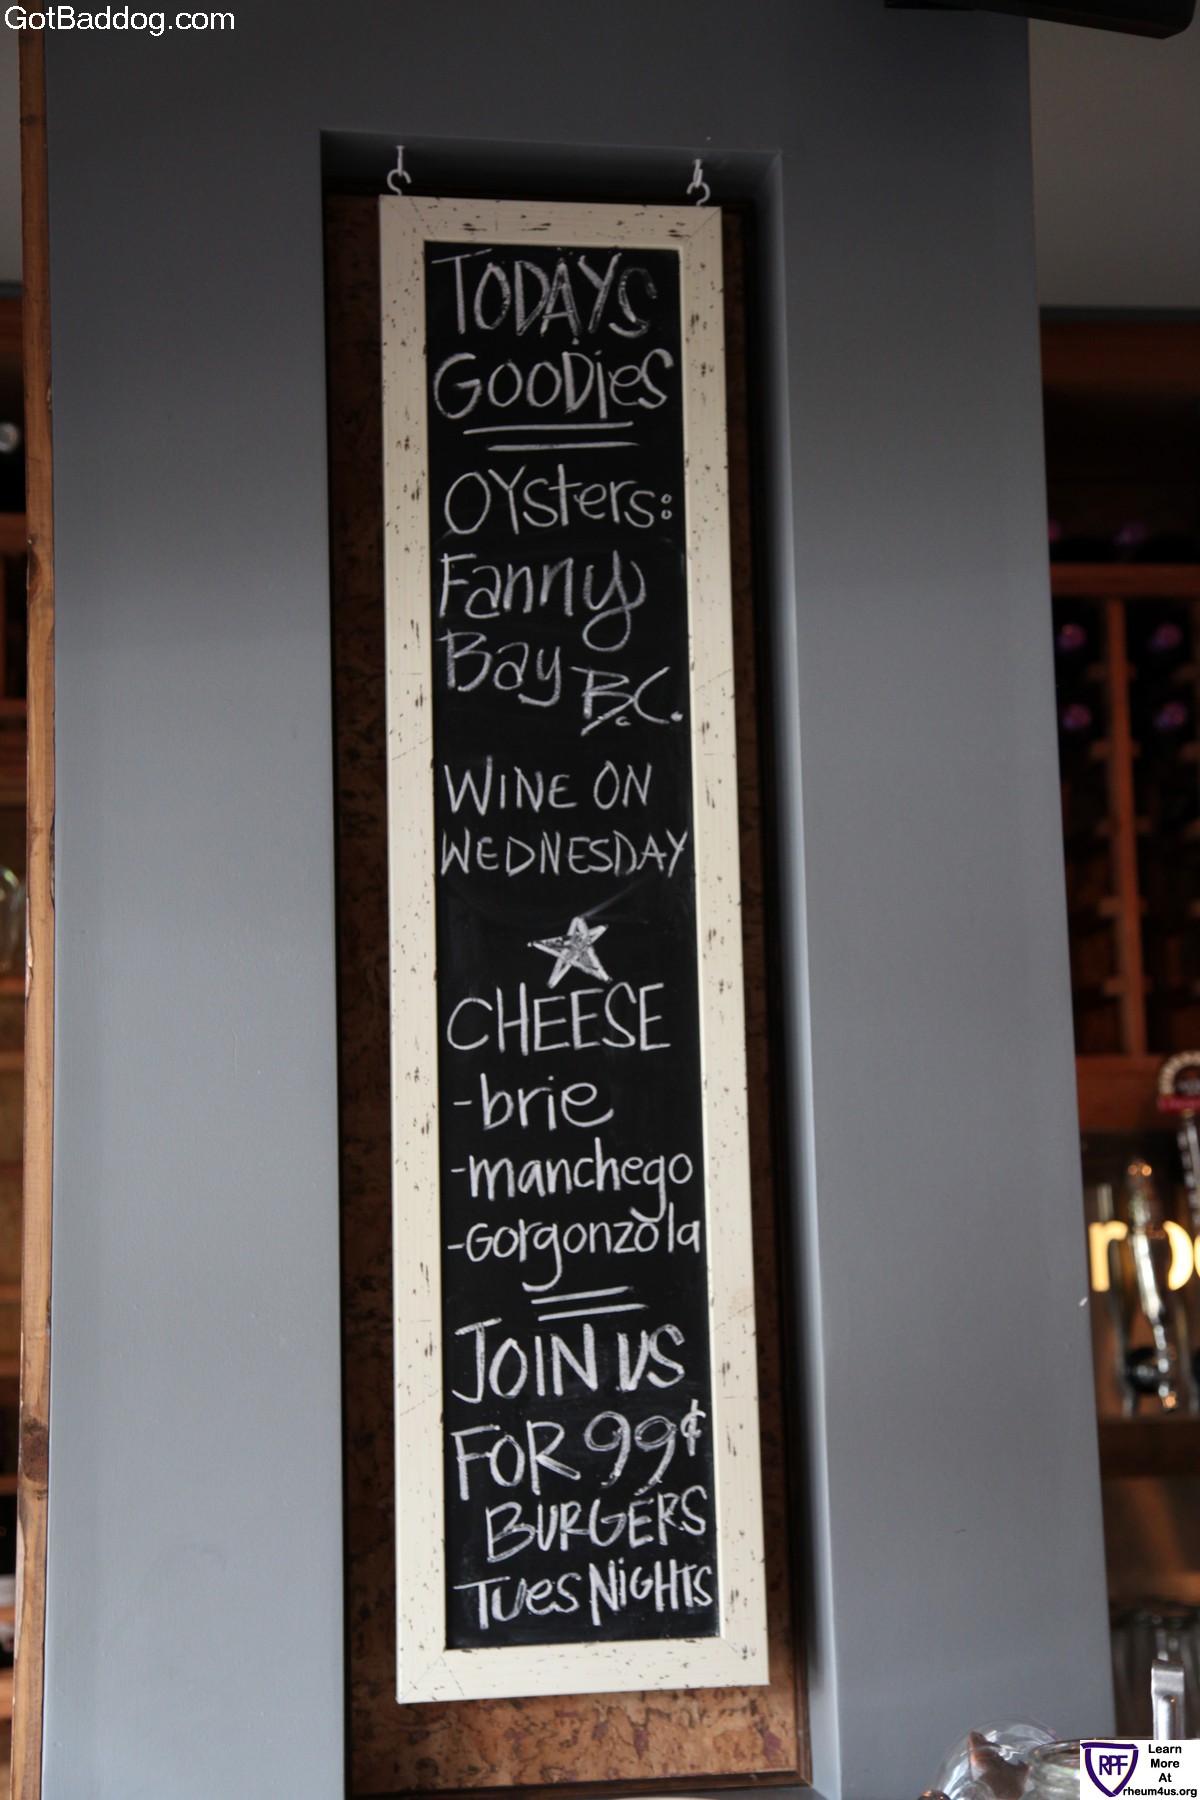 GotBaddog.com
TODAYS
GOODiES
OYsters:
Fanny
Bay B.C.
WINE ON
WEDNESDAY
CHEESE
-brie
-manchego
-Gorgonzola
JOIN US
FOR 99¢
BURGERS
TUes NiGHTS
RPF
Learn
More
At
rheum4us.org